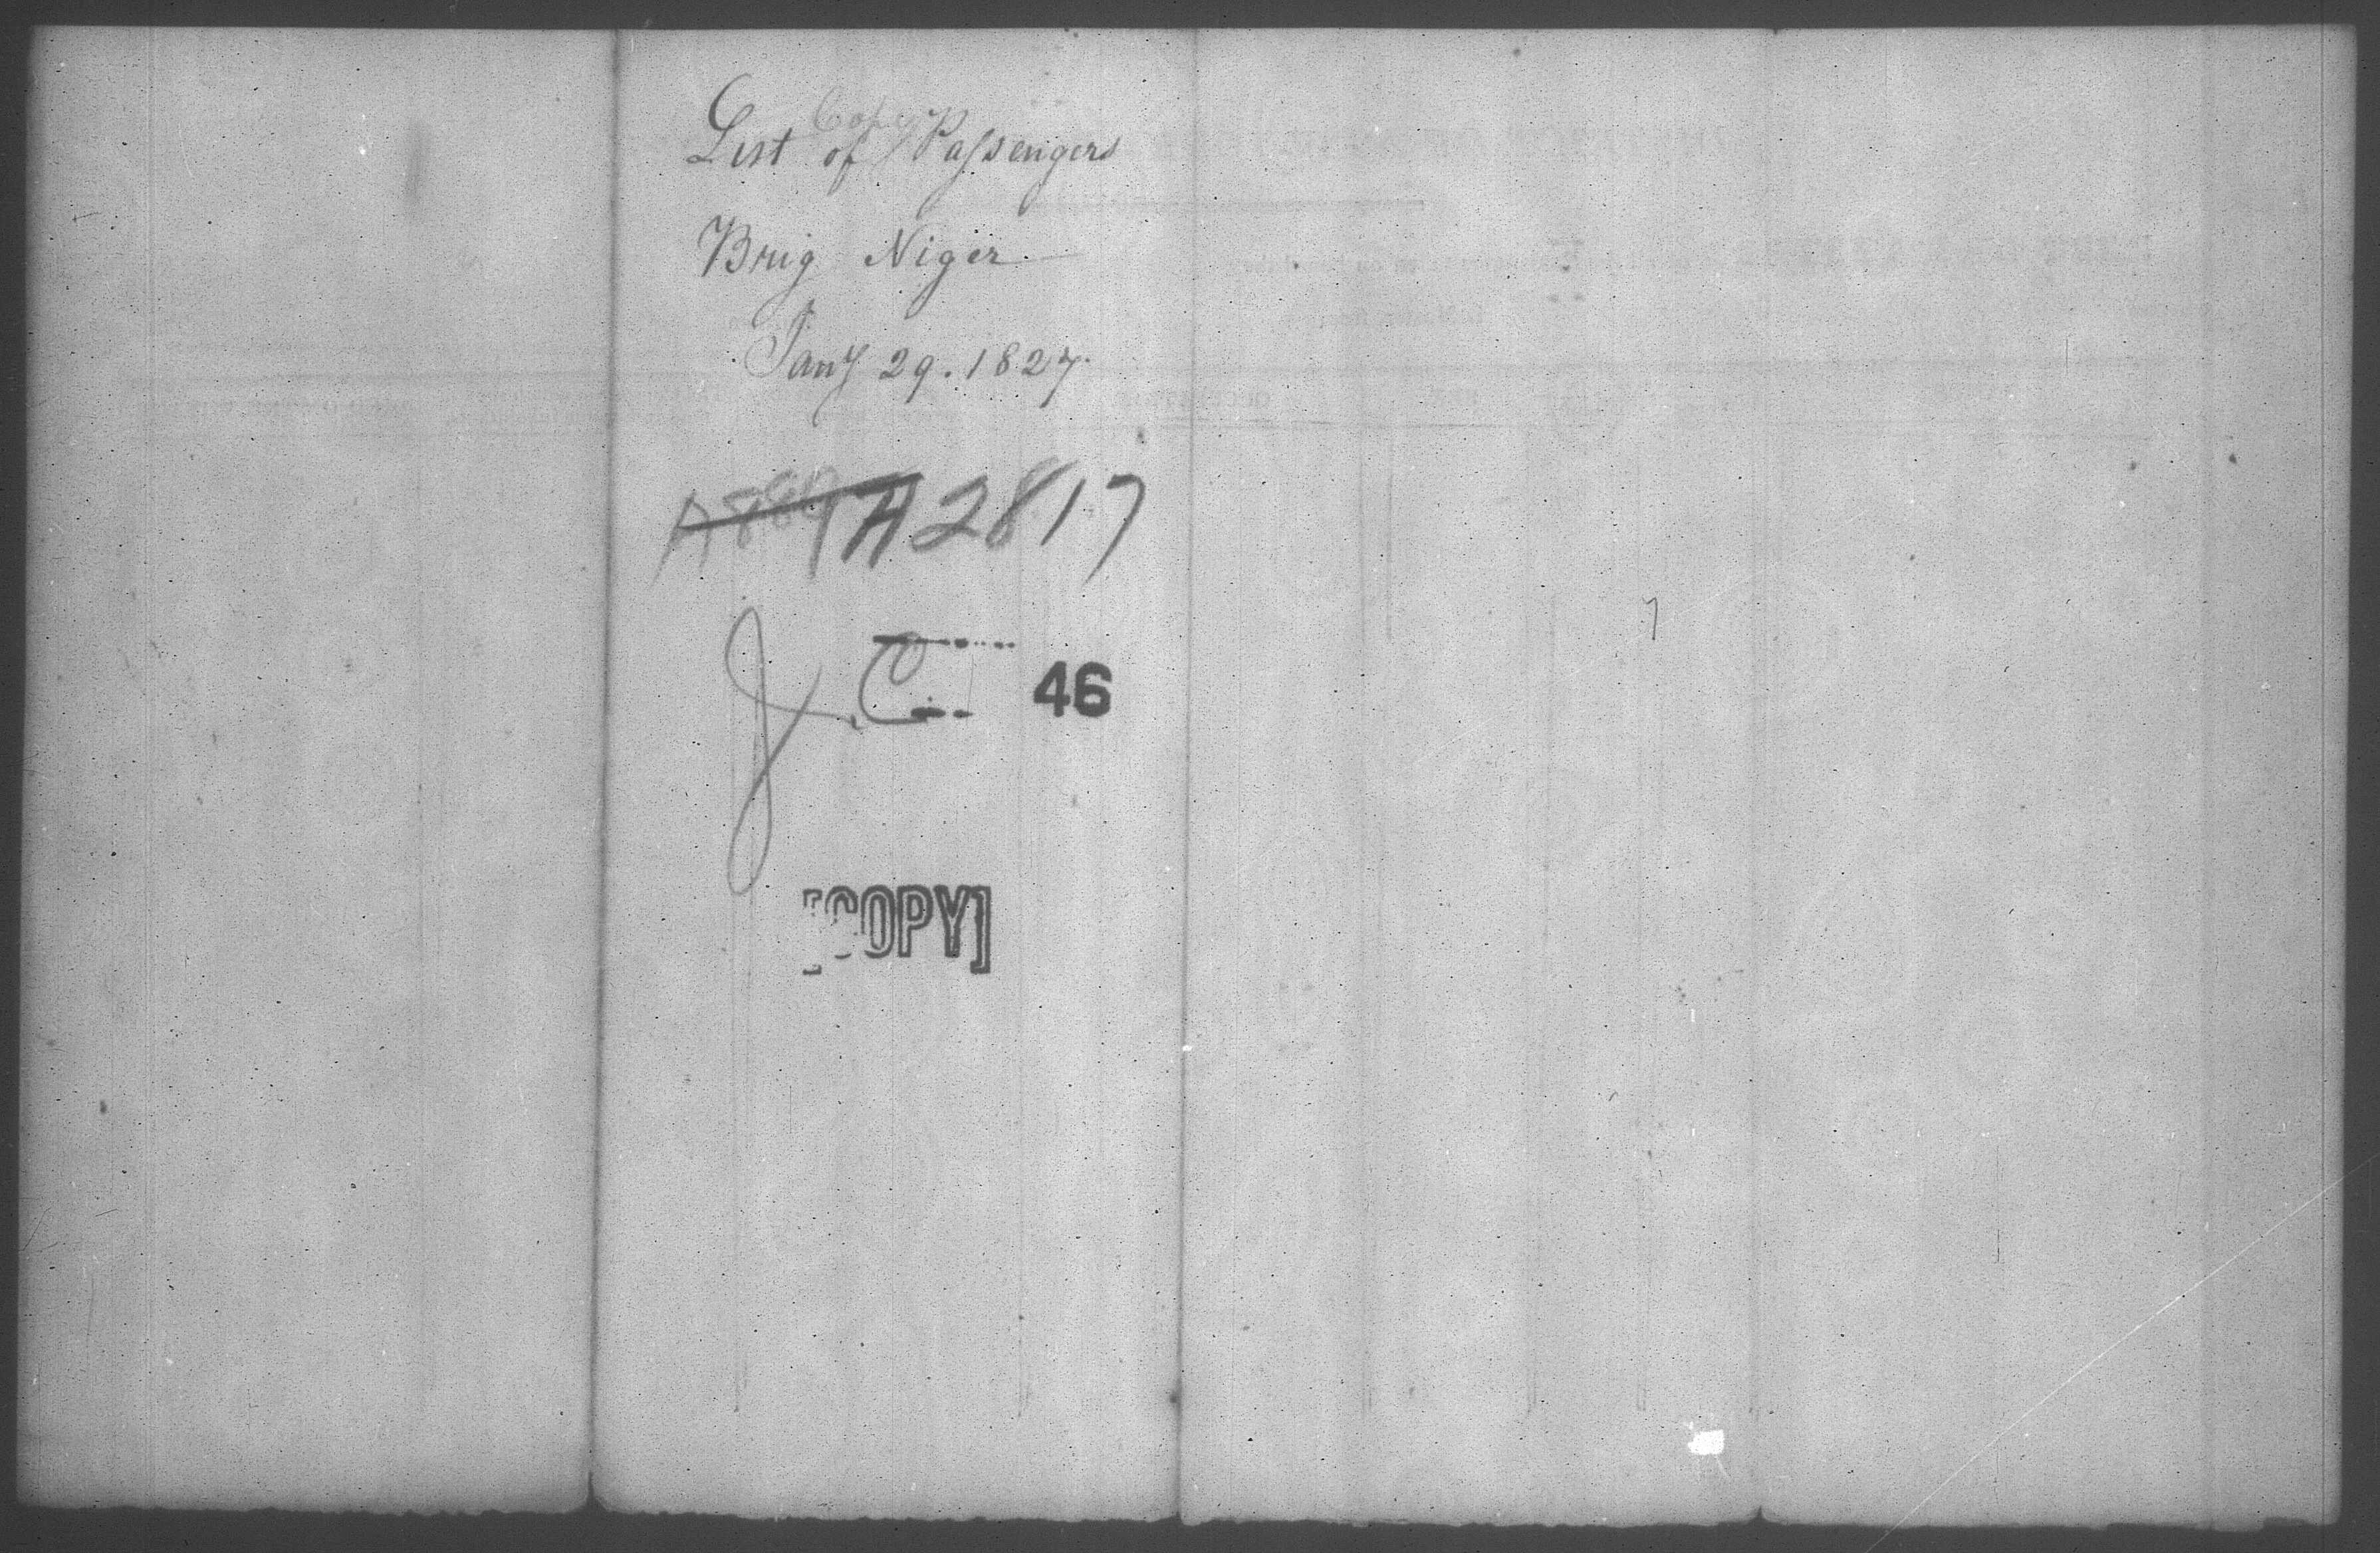 Copy
List of Passengers
Brig Niger
Jany 29. 1827.
A2817
J. C. 46
[COPY]